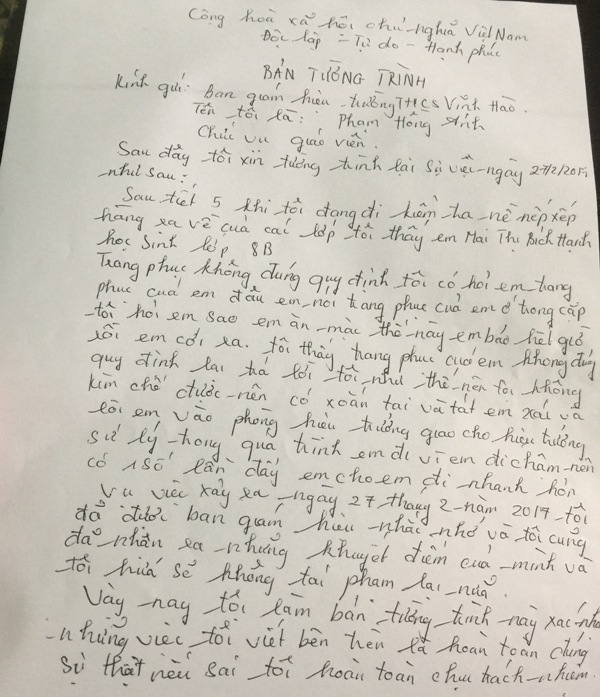 Cộng hoà xã hội chủ nghĩa Việt Nam
Độc lập - Tự do - Hạnh phúc
BẢN TƯỜNG TRÌNH
Kính gửi: Ban giám hiệu trường THCS Vĩnh Hào.
Tên tôi là: Phạm Hồng Ánh
Chức vụ giáo viên.
Sau đây tôi xin tường trình lại sự việc ngày 27/2/2017
như sau:
Sau tiết 5 khi tôi đang đi kiểm tra nề nếp xếp
hàng ra về của các lớp tôi thấy em Mai Thị Bích Hạnh
học sinh lớp 8B
Trang phục không đúng quy định tôi có hỏi em trang
phục của em đâu em nói trang phục của em ở trong cặp
tôi hỏi em sao em ăn mặc thế này em bảo hết giờ
rồi em cởi ra. tôi thấy trang phục của em không đúng
quy định lại trả lời tôi như thế nên tôi không
kìm chế được nên có xoắn tai và tát em xái và
lôi em vào phòng hiệu trưởng giao cho hiệu trưởng
sử lý trong quá trình em đi vì em đi chậm nên
có 1 số lần đẩy em cho em đi nhanh hơn
Vụ việc xảy ra ngày 27 tháng 2 năm 2017 tôi
đã được ban giám hiệu nhắc nhở và tôi cũng
đã nhận ra những khuyết điểm của mình và
tôi hứa sẽ không tái phạm lại nữa.
Vậy nay tôi làm bản tường trình này xác nhận
những việc tôi viết bên trên là hoàn toàn đúng
sự thật nếu sai tôi hoàn toàn chịu trách nhiệm.